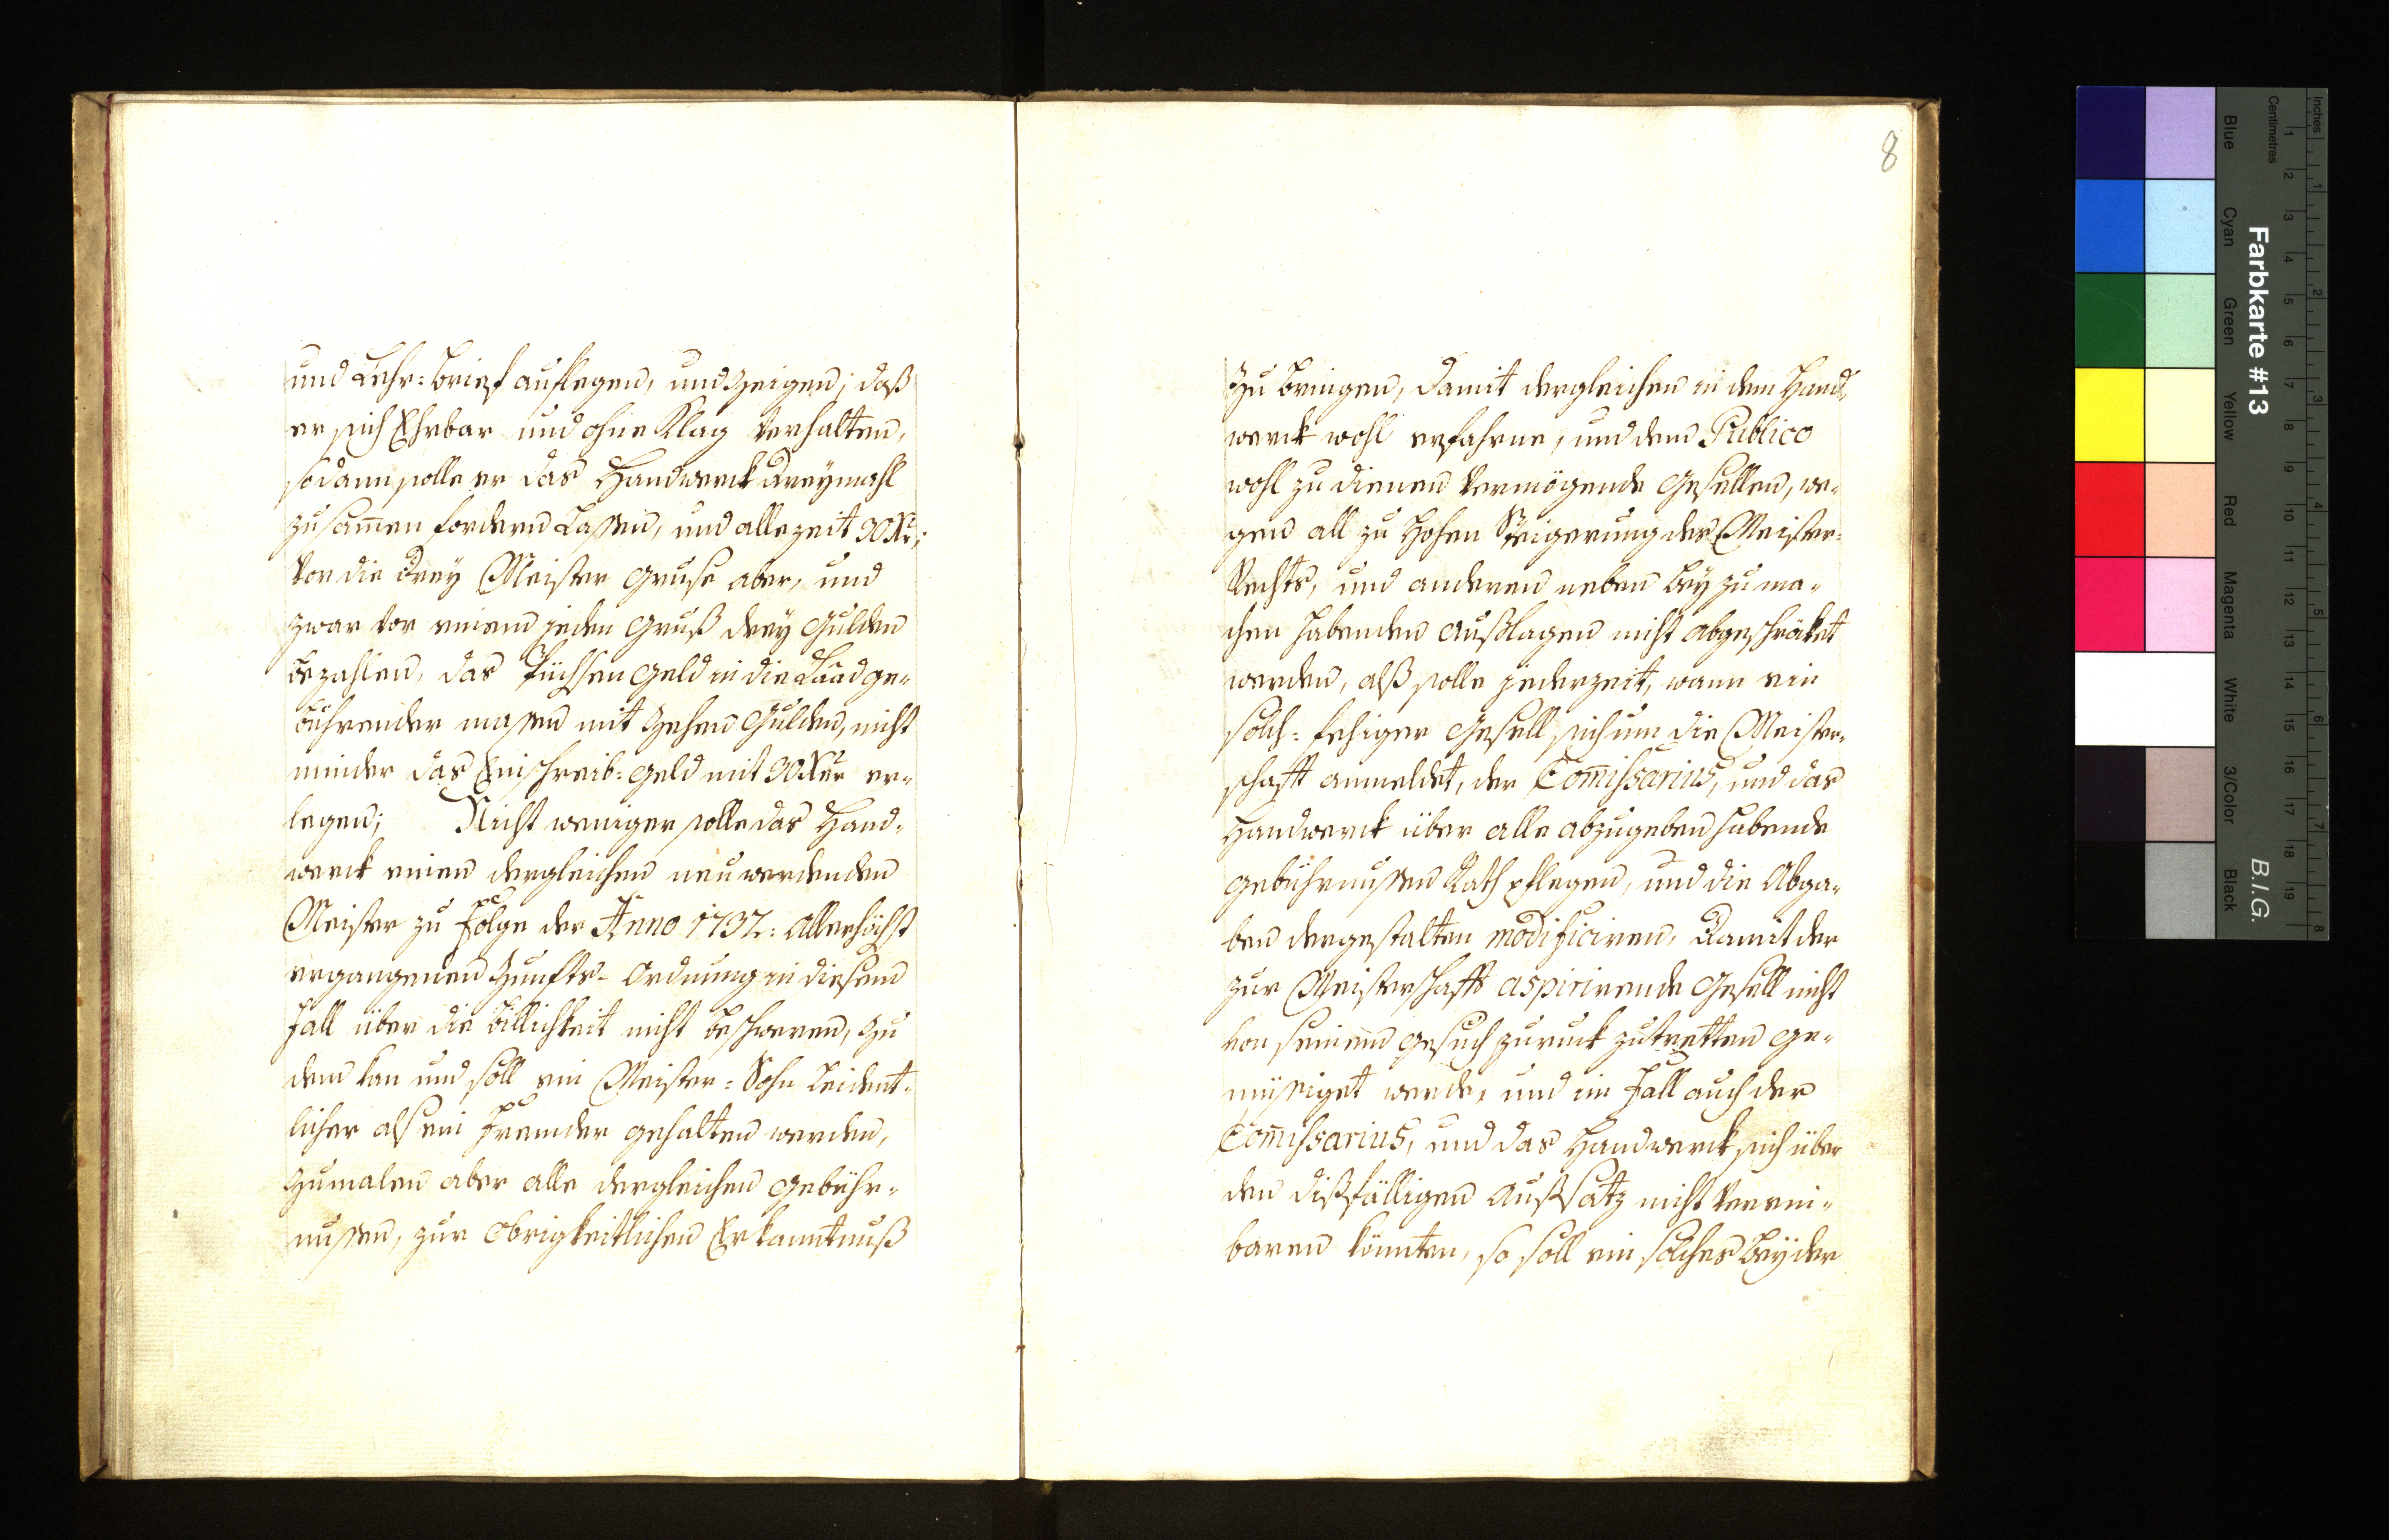 und Lehr=Brief auflegen, und Zeigen; daß
er sich Ehrbar und ohne Klag verhalten,
sodann solle er das Handwerck dreymahl
zusam̅en fordern Lassen, und allezeit 30 Xr;
vor die drey Meister Gruse aber, und
zwar vor einem jeden Gruß drey Gulden
bezahlen, das Füchsen Geld in die Laad ge-
bührender masen mit Zehen Gulden, nicht
minder das Einschreib=Geld mit 30 Xer er-
legen; Nicht weniger solle das Hand-
werck einen dergleichen neu werdenden
Meister zu Folge der Anno 1732: Allerhöchst
ergangenen Zunfts-Ordnung in diesem
Fall über die Billichkeit nicht beschweren, Zu
dem kan und soll ein Meister=Sohn Leident-
licher als ein Fremder gehalten werden,
Zumalen aber alle dergleichen Gebühr-
nussen, zur Obrigkeitlichen Erkanntnuß
8
Zu bringen, damit dergleichen in dem Hand-
werck wohl erfahrne, und dem Publico
wohl zu dienen vermögende Gesellen, we-
gen all zu hohen Steigerung des Meister=
Rechts, und anderen neben bey zu ma-
chen habenden Außlagen nicht abgeschräket
werden, alß solle jederzeit, wann ein
solch=fehiger Gesell sich um die Meister-
schafft anmeldet, der Com̅issarius, und das
Handwerck über alle abzugeben habende
Gebührnussen Rath pflegen, und die Abga-
ben dergestalten modificiren, damit der
zur Meisterschafft aspirirende Gesell nicht
von seinem Gesuch zuruck zutretten ge-
müsiget werde, und im Fall auch der
Com̅issarius, und das Handwerck sich über
den dißfälligen Außsatz nicht verein-
baren könnten, so soll ein solches bey der
Farbkarte #13
B.I.G.
Inches
Centimetres
1 2 3 4 5 6 7 8 9 10 11 12 13 14 15 16 17 18 19
1 2 3 4 5 6 7 8
Blue
Cyan
Green
Yellow
Red
Magenta
White
3/Color
Black